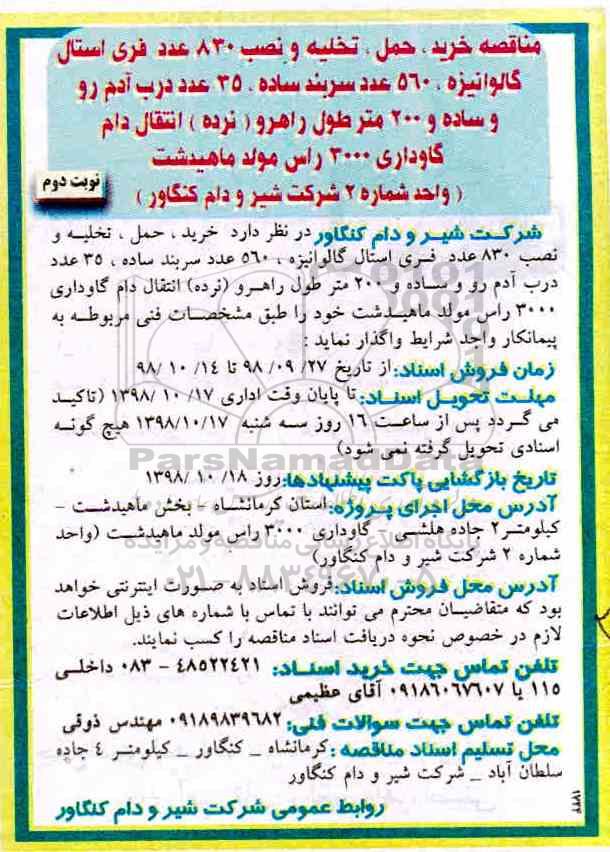 مناقصه خرید ، حمل ، تخلیه و نصب ۸۳۰ عدد فری استال
گالوانیزه ، ۵۶۰ عدد سربند ساده ، ۳۵ عدد درب آدم رو
و ساده و ۲۰۰ متر طول راهرو ( نرده ) انتقال دام
گاوداری ۳۰۰۰ راس مولد ماهیدشت
( واحد شماره ۲ شرکت شیر و دام کنگاور )
نوبت دوم
شرکت شیر و دام کنگاور در نظر دارد خرید ، حمل ، تخلیه و
نصب ۸۳۰ عدد فری استال گالوانیزه ، ۵۶۰ عدد سربند ساده ، ۳۵ عدد
درب آدم رو و ساده و ۲۰۰ متر طول راهرو (نرده) انتقال دام گاوداری
۳۰۰۰ راس مولد ماهیدشت خود را طبق مشخصات فنی مربوطه به
پیمانکار واجد شرایط واگذار نماید :
زمان فروش اسناد: از تاریخ ۲۷/ ۰۹/ ۹۸ تا ۱۴/ ۱۰ /۹۸
مهلت تحویل اسناد: تا پایان وقت اداری ۱۷/ ۱۰ /۱۳۹۸ (تاکید
می گردد پس از ساعت ۱۶ روز سه شنبه ۱۳۹۸/۱۰/۱۷ هیچ گونه
اسنادی تحویل گرفته نمی شود)
تاریخ بازگشایی پاکت پیشنهادها: روز ۱۸/ ۱۰ /۱۳۹۸
آدرس محل اجرای پروژه: استان کرمانشاه - بخش ماهیدشت -
کیلومتر۲ جاده هلشی - گاوداری ۳۰۰۰ راس مولد ماهیدشت (واحد
شماره ۲ شرکت شیر و دام کنگاور)
آدرس محل فروش اسناد: فروش اسناد به صورت اینترنتی خواهد
بود که متقاضیان محترم می توانند با تماس با شماره های ذیل اطلاعات
لازم در خصوص نحوه دریافت اسناد مناقصه را کسب نمایند.
تلفن تماس جهت خرید اسناد: ۴۸۵۲۲۴۲۱ - ۰۸۳ داخلی
۱۱۵ یا ۰۹۱۸۶۰۶۷۶۰۷ آقای عظیمی
تلفن تماس جهت سوالات فنی: ۰۹۱۸۹۸۳۹۶۸۲ مهندس ذوقی
محل تسلیم اسناد مناقصه : کرمانشاه _ کنگاور _ کیلومتر ۴ جاده
سلطان آباد _ شرکت شیر و دام کنگاور
روابط عمومی شرکت شیر و دام کنگاور
۱۷۲۲
ParsNamadData
پایگاه اطلاع رسانی مناقصه و مزایده
۰۲۱-۸۸۳۴۹۶۷۰-۵